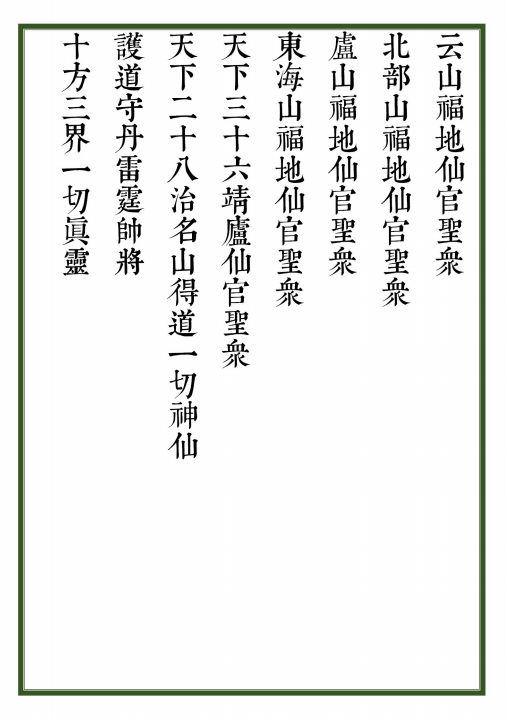 云山福地仙官聖衆
北部山福地仙官聖衆
盧山福地仙官聖衆
東海山福地仙官聖衆
天下三十六靖廬仙官聖衆
天下二十八治名山得道一切神仙
護道守丹雷霆帥將
十方三界一切眞靈